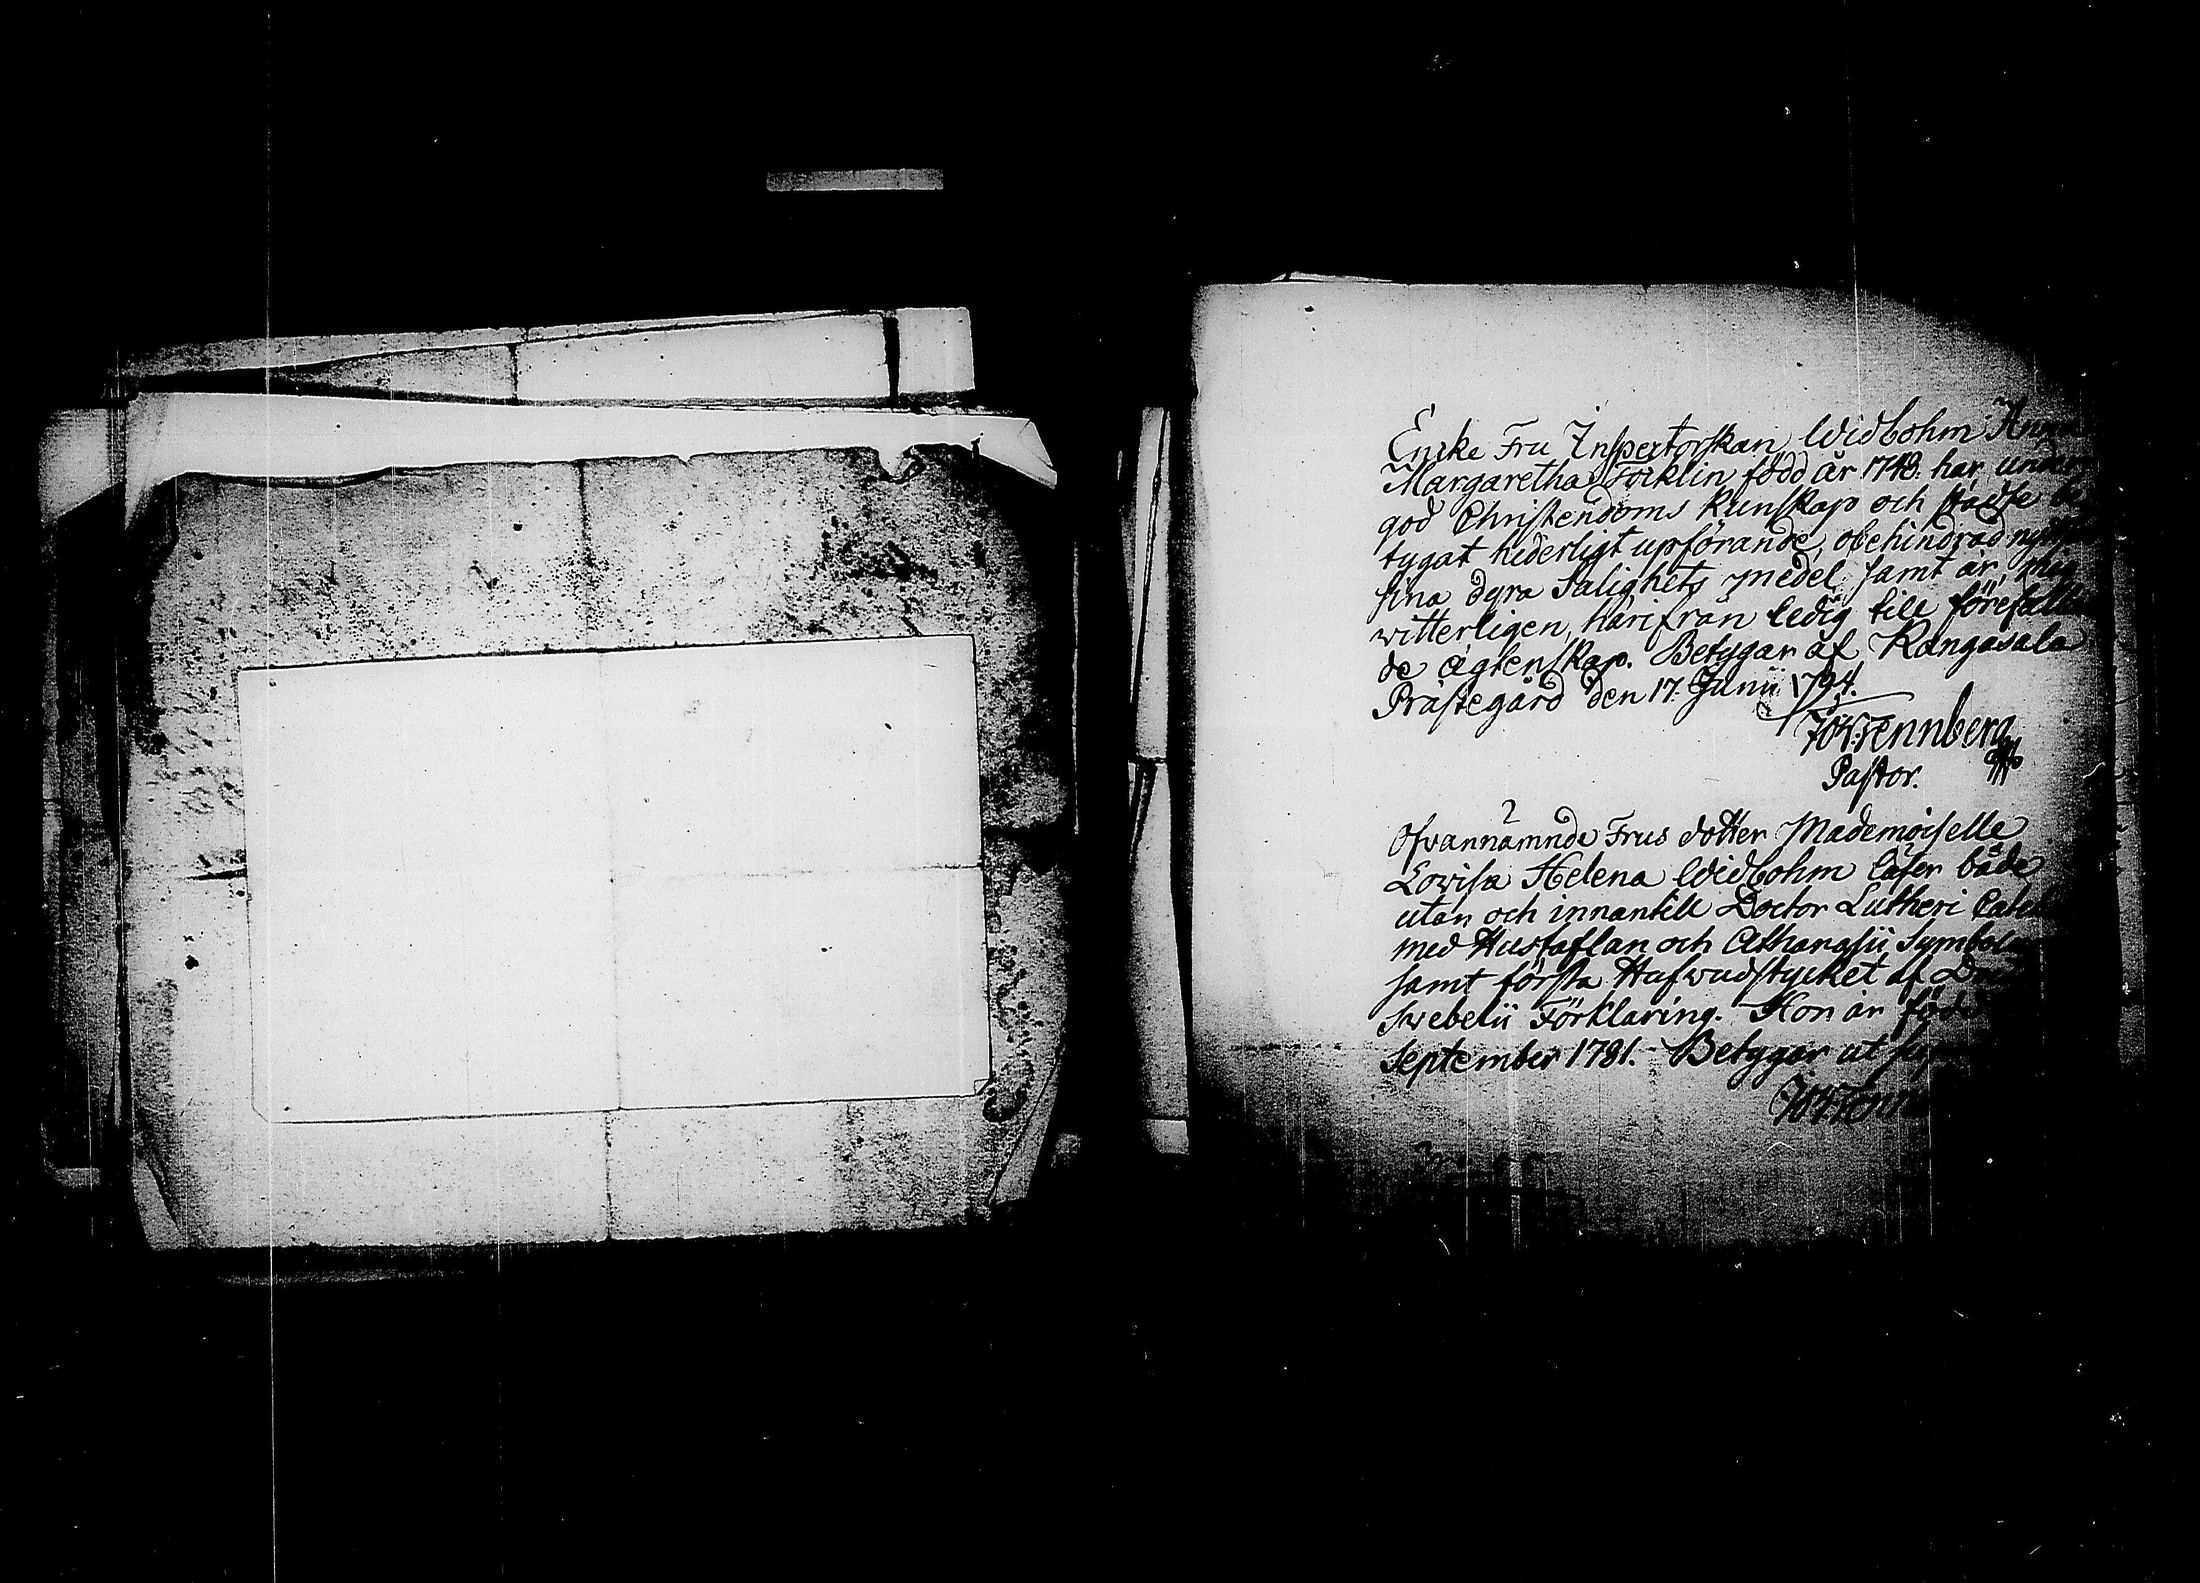 Encke Fru Inspectorskan Widbohm Anna
Margaretha Forklin född år 1748. har under
god Christendoms kunskap och städse be
tygat hederligt upförande, obehindrad
sina dyra Salighets medel, samt är,
witterligen, härifrån ledig till förefallan
de ägtenskap. Betygar af Kangasala
Prästegård den 17. Junii 1794.
Pastor.
Ofvannämnde Frus dotter Mademoiselle
Lovisa Helena Widbohm läser både
utan och innantill Doctor Lutheri
med Hustaflan och Athanasii Symbolum
samt första Hufwudstycket af
Swebelii Förklaring. Hon är född
September 1781. Betygar ut